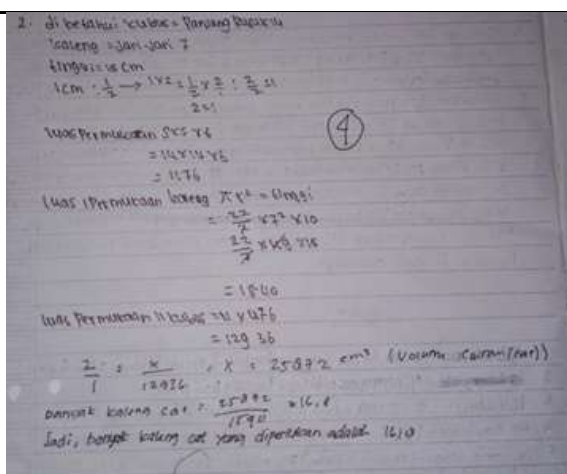 2. di ketahui : kubus = Panjang Rusuk 14
kaleng = Jari-Jari 7
tinggi = 10 cm
1 cm : 1/2 → 1x2 = 1/2 x 2/1 : 2/2 = 1
2 = 1
luas Permukaan S x S x 6
= 14 x 14 x 6
= 1176
④
luas Permukaan kaleng πr² = tinggi
= 22/7 x 7² x 10
22/7 x 49 x 10
= 1540
luas Permukaan 11 kubus = 11 x 1176
= 129 36
2/1 = x/12936 = x = 25872 cm³ (Volume Cairan (cat))
banyak kaleng cat = 25872/1540 = 16,8
Jadi, banyak kaleng cat yang diperlukan adalah 16,8